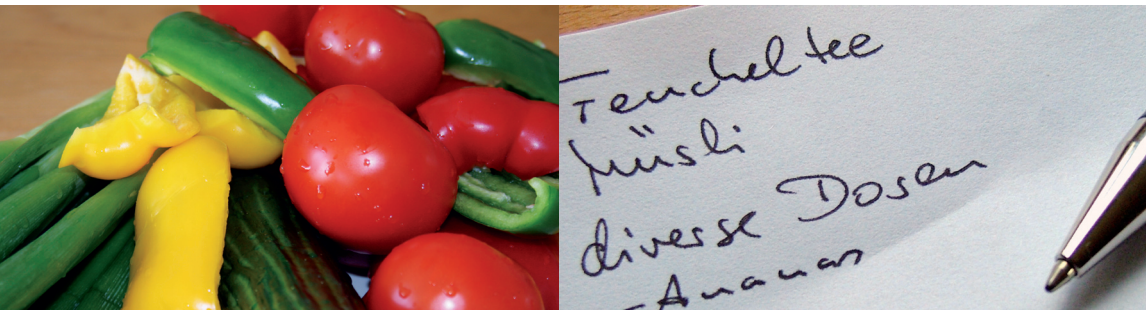 Fencheltee
Müsli
diverse Dosen
- Ananas